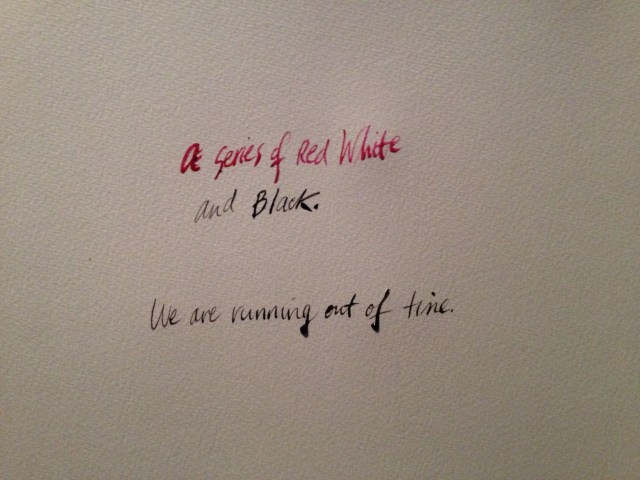 a series of Red White
and Black.
We are running out of time.